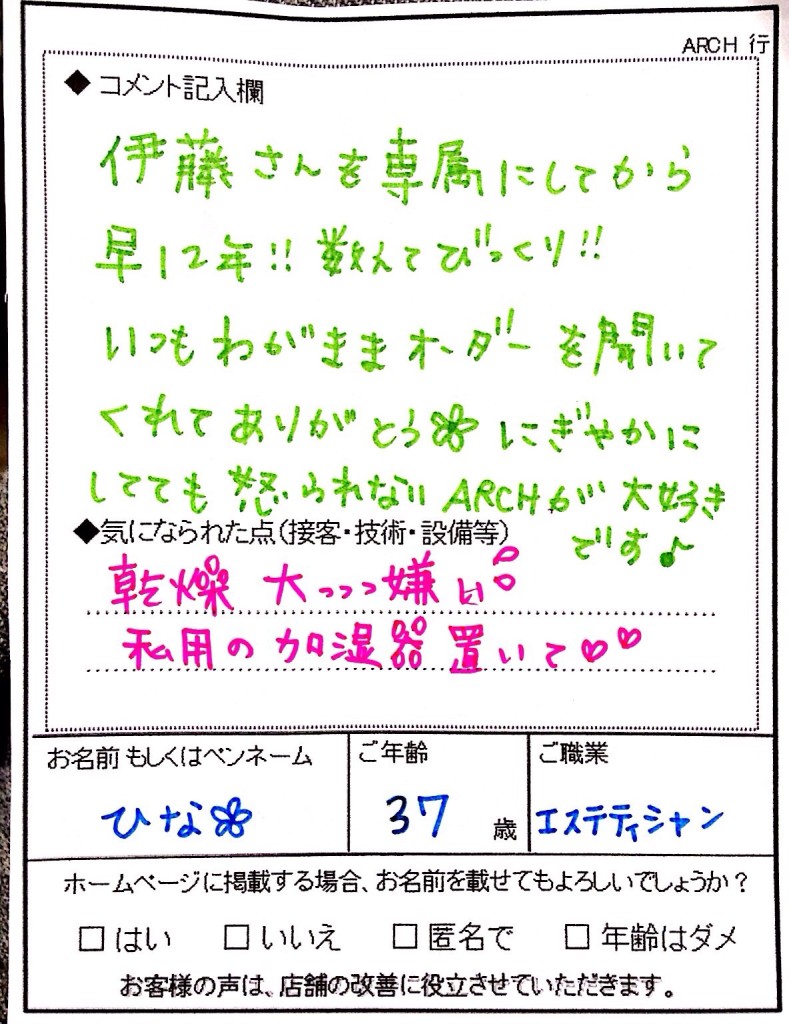 ARCH 行
◆コメント記入欄
伊藤さんを専属にしてから
早12年!! 数えてびっくり!!
いつもわがままオーダーを聞いて
くれてありがとう にぎやかに
してても怒られないARCHが大好き
です♪
◆気になられた点(接客・技術・設備等)
乾燥 大っっっ嫌い
私用の加湿器置いて♡♡
お名前 もしくはペンネーム
ご年齢
ご職業
ひな
37 歳
エステティシャン
ホームページに掲載する場合、お名前を載せてもよろしいでしょうか?
□ はい □ いいえ □ 匿名で □ 年齢はダメ
お客様の声は、店舗の改善に役立させていただきます。